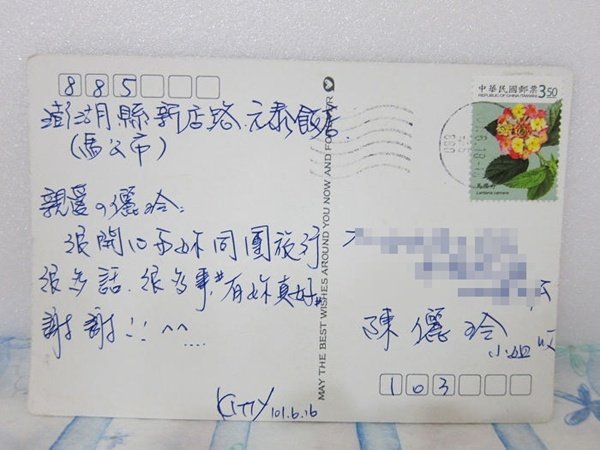 885
澎湖縣新店路.元泰飯店
(馬公市)
親愛の儷玲:
很開心與妳同團旅行
很多話.很多事,有妳真好
謝謝!! ^^....
Kitty 101.6.16
MAY THE BEST WISHES AROUND YOU NOW AND FOREVER
中華民國郵票
REPUBLIC OF CHINA (TAIWAN)
3.50
馬纓丹
Lantana camara
880
陳儷玲 小姐 收
103